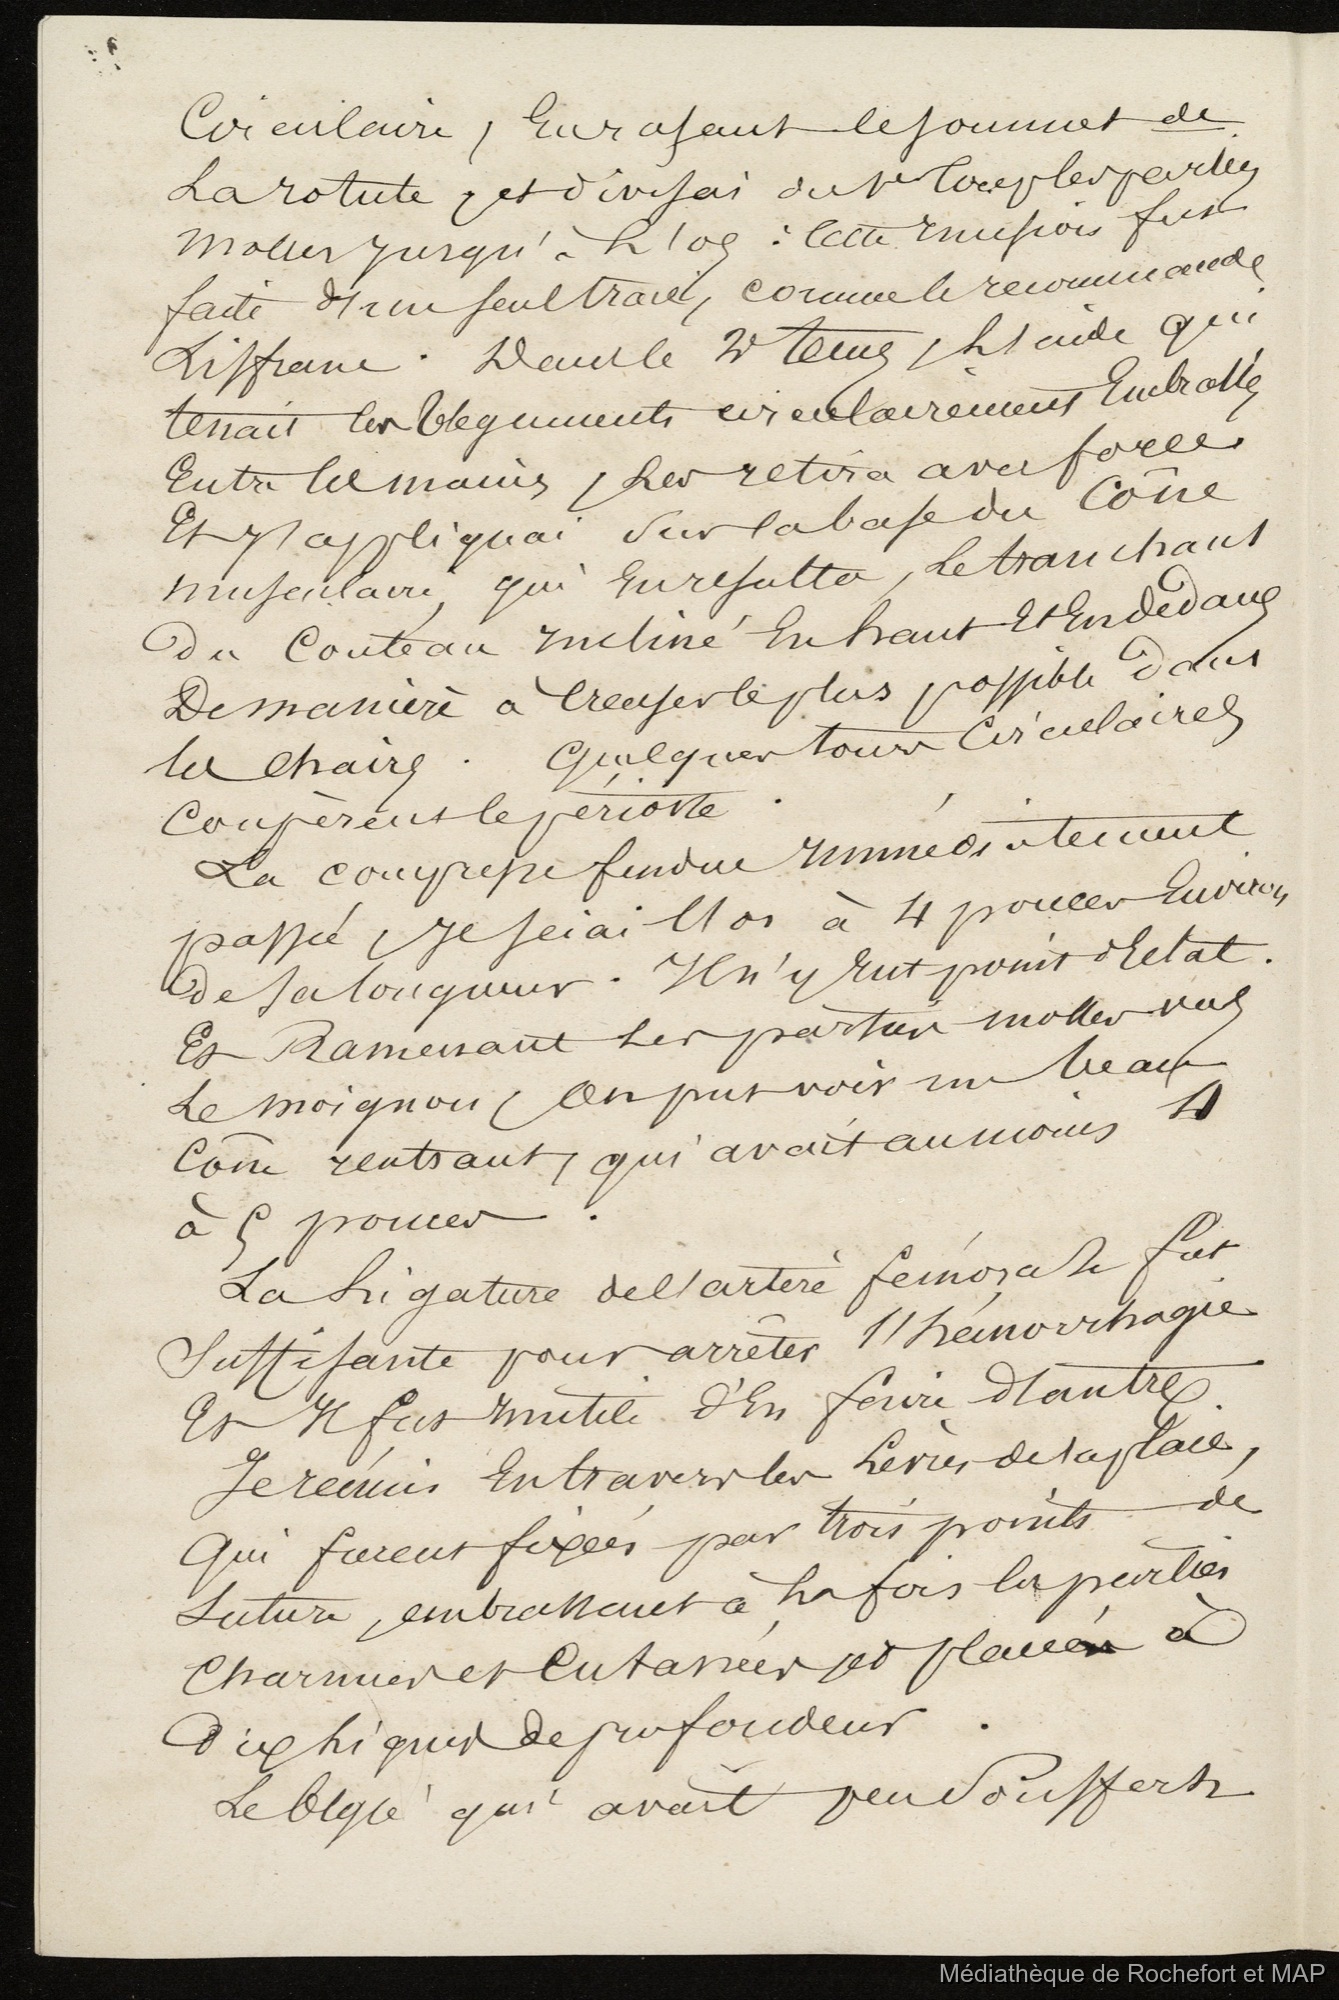 Circulaire, En rasant le sommet de
La rotule, et divisai du 1er Coup les parties
molles jusqu'à L'os : Cette Incision fut
faite d'un seul trait, comme le recommande
Lisfranc. Dans le 2e tems, L'aide qui
tenait les téguments circulairement Embrassés
Entre les mains, Les retira avec force
Et J'appliquai Sur la base du Cône
musculaire, qui En resulta, Le tranchant
Du Couteau Incliné En haut Et En dedans
De manière à Creuser le plus possible Dans
les Chairs. Quelques tours Circulaires
Coupèrent le périoste.
La compresse fendue Immédiatement
passée, Je sciai l'os à 4 pouces Environ
De sa longueur. Il n'y Eut point d'Eclat.
Et Ramenant Les parties molles vers
Le moignon, On put voir un beau
Cône rentrant, qui avait au moins 4
à 5 pouces.
La Ligature de l'artère fémorale fut
Suffisante pour arrêter l'hémorrhagie
Et Il fut Inutile d'En faire d'autres.
Je réunis En travers les Lèvres de la plaie,
Qui furent fixées par trois points de
Suture, embrassant à La fois les parties
Charnues et Cutanées et placés à
Dix Lignes De profondeur.
Le blessé qui avait peu Souffert
Médiathèque de Rochefort et MAP